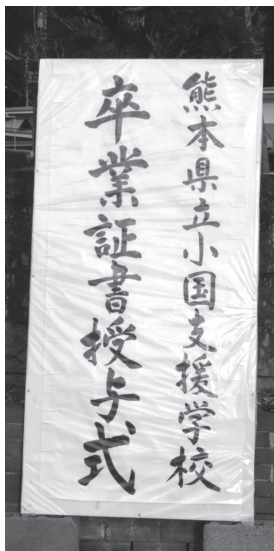 熊本県立小国支援学校
卒業証書授与式